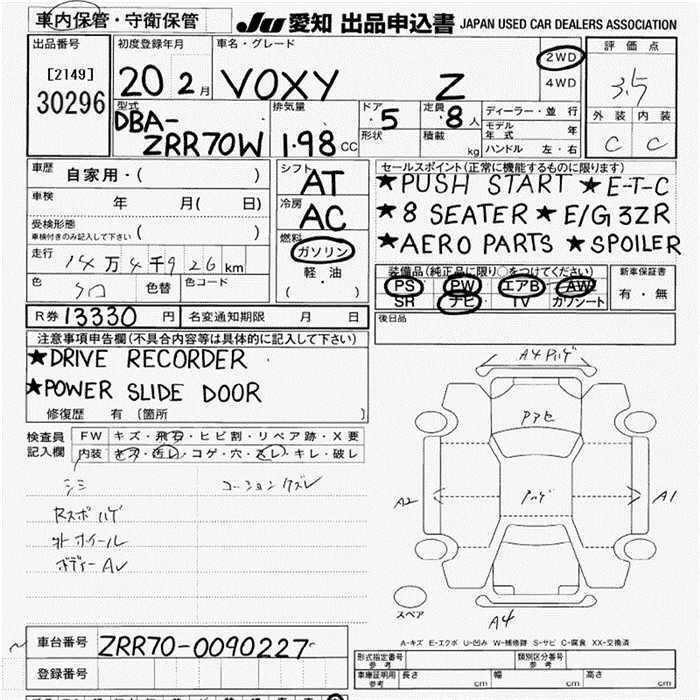 車内保管・守衛保管
JU 愛知 出品申込書 JAPAN USED CAR DEALERS ASSOCIATION
出品番号 初度登録年月 車名・グレード 評価点
[2149]
30296
20 2月 VOXY Z 2WD 4WD 3.5
型式 排気量 ドア 定員 ディーラー・並行 外装 内装
DBA-ZRR70W 1.98 CC 5 8人 モデル年式 年 C C
形状 積載 kg ハンドル 左・右
車歴 自家用・( )
シフト AT
セールスポイント(正常に機能するものに限ります)
★PUSH START ★E-T-C
車検 年 月( 日)
冷房 AC
★8 SEATER ★E/G 3ZR
受検形態 ( )
車検付きのみ記入して下さい
燃料 ガソリン
★AERO PARTS ★SPOILER
走行 14万4千926km
軽・油
( )
装備品(純正品に限り○をつけてください) 新車保証書
PS PW エアB AW 有・無
SR ナビ TV カワシート
色 シロ 色替 色コード
R券 13330円 名変通知期限 月 日
後日品
注意事項申告欄(不具合内容等は具体的に記入して下さい)
★DRIVE RECORDER
★POWER SLIDE DOOR
修復歴 有 〔箇所 〕
検査員 FW キズ・飛石・ヒビ割・リペア跡・X要
記入欄 内装 キズ・汚レ・コゲ・穴・スレ・キレ・破レ
シミ コーションクズレ
Rスポ ハゲ
外ホイール
ボディーAレ
A4 Pハゲ
Pアセ
A2 Pハゲ A1
スペア
A4
A-キズ E-エクボ U-凹み W-補修跡 S-サビ C-腐食 XX-交換済
車台番号 ZRR70-0090227
形式指定番号 参考 類別区分番号 参考
登録番号
車庫証明用 参考 長さ cm 幅 cm 高さ cm